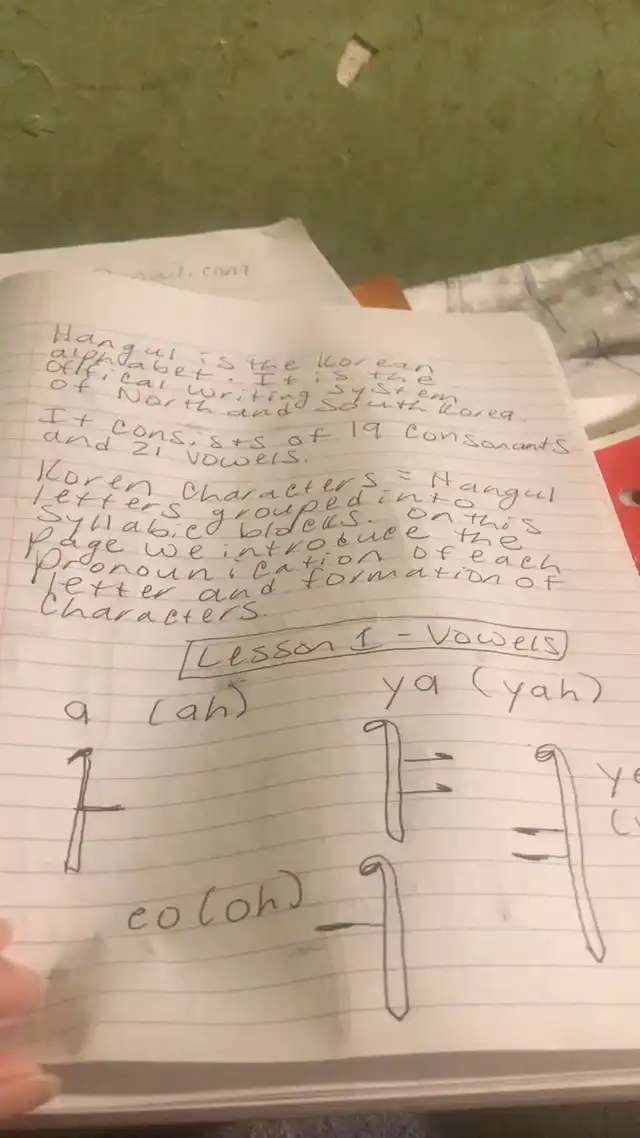 mail.com
Hangul is the Korean
alphabet. It is the
offical writing system
of North and South Korea.
It consists of 19 consonants
and 21 vowels.
Koren characters = Hangul
letters grouped into
syllabic blocks. On this
page we introduce the
pronounication of each
letter and formation of
characters.
Lesson 1 - Vowels
a (ah) ya (yah)
ㅏ ㅑ ㅕ
eo (oh) ㅓ